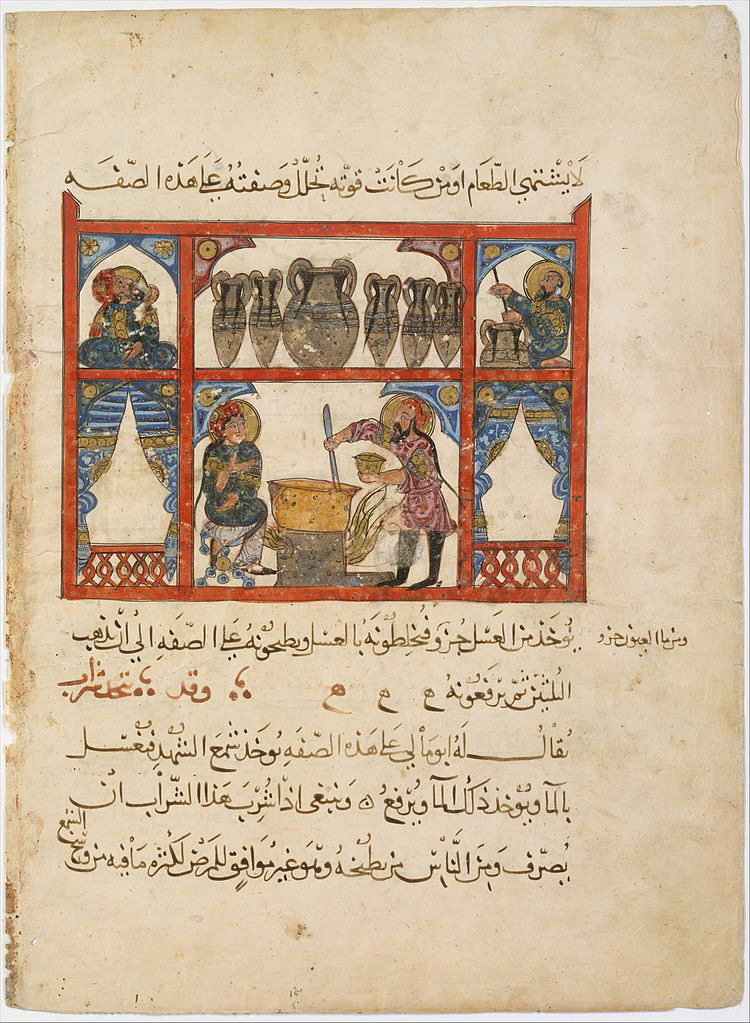 لا يشتهي الطعام او من كانت قوته تحلل وصفته على هذه الصفه
يوخذ من العسل جزو فيخلطونه بالعسل ويطبخونه على الصفه الى ان يذهب
ومن ما العيون جزو
الثلثين ثم يرفعونه ح ح ح وقد يتخذ شراب
يقال له ابومالي على هذه الصفه يوخذ شمع الشهد فيغسل
بالما ويوخذ ذلك الما ويرفع ٥ وينبغي اذا شرب هذا الشراب ان
يصرف ومن الناس من يطبخه وهو غير موافق للمرض لكثرة ما فيه من وسخ
الشمع